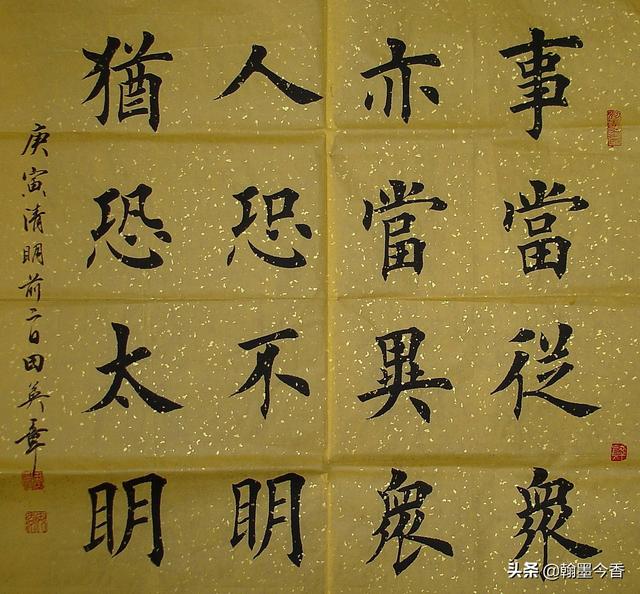 事當從衆
亦當異衆
人恐不明
猶恐太明
庚寅清明前二日田英章
头条 @翰墨今香